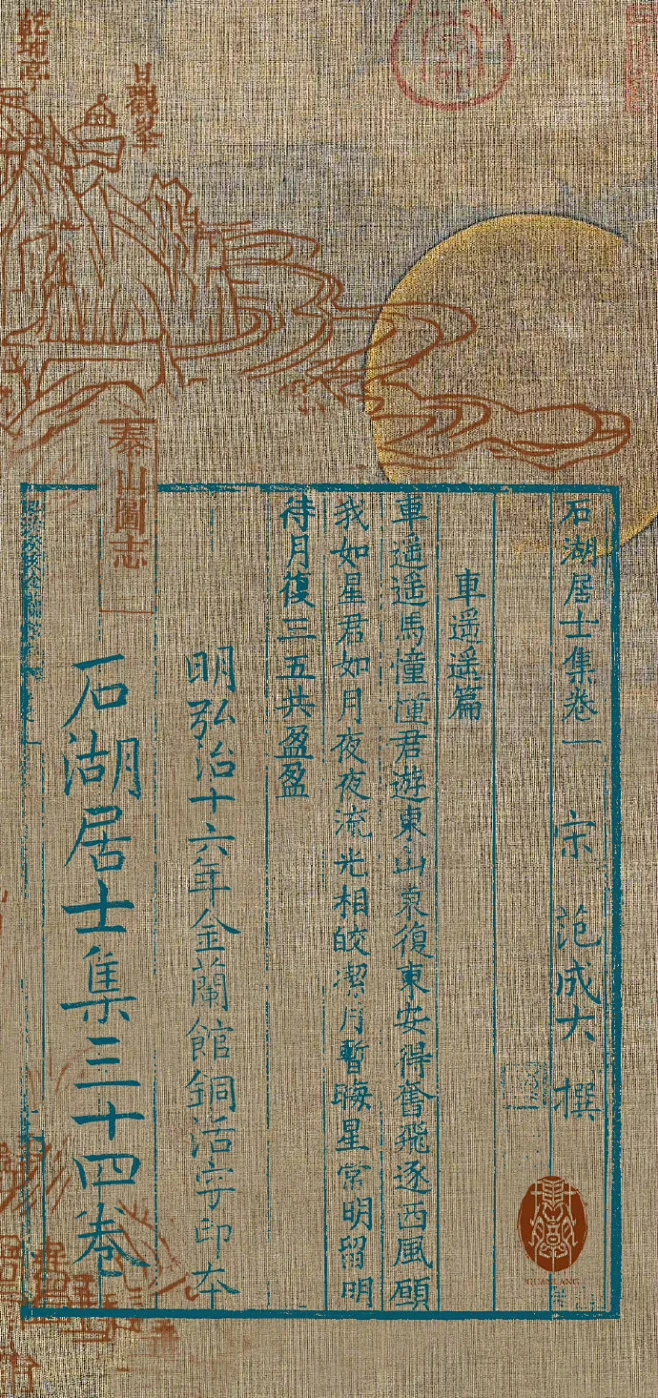 乾坤亭
日觀峯
泰山圖志
石湖居士集卷一 宋 范成大 撰
車遥遥篇
車遥遥馬憧憧君遊東山東復東安得奮飛逐西風願
我如星君如月夜夜流光相皎潔月暫晦星常明留明
待月復三五共盈盈
明弘治十六年金蘭館銅活字印本
石湖居士集三十四卷